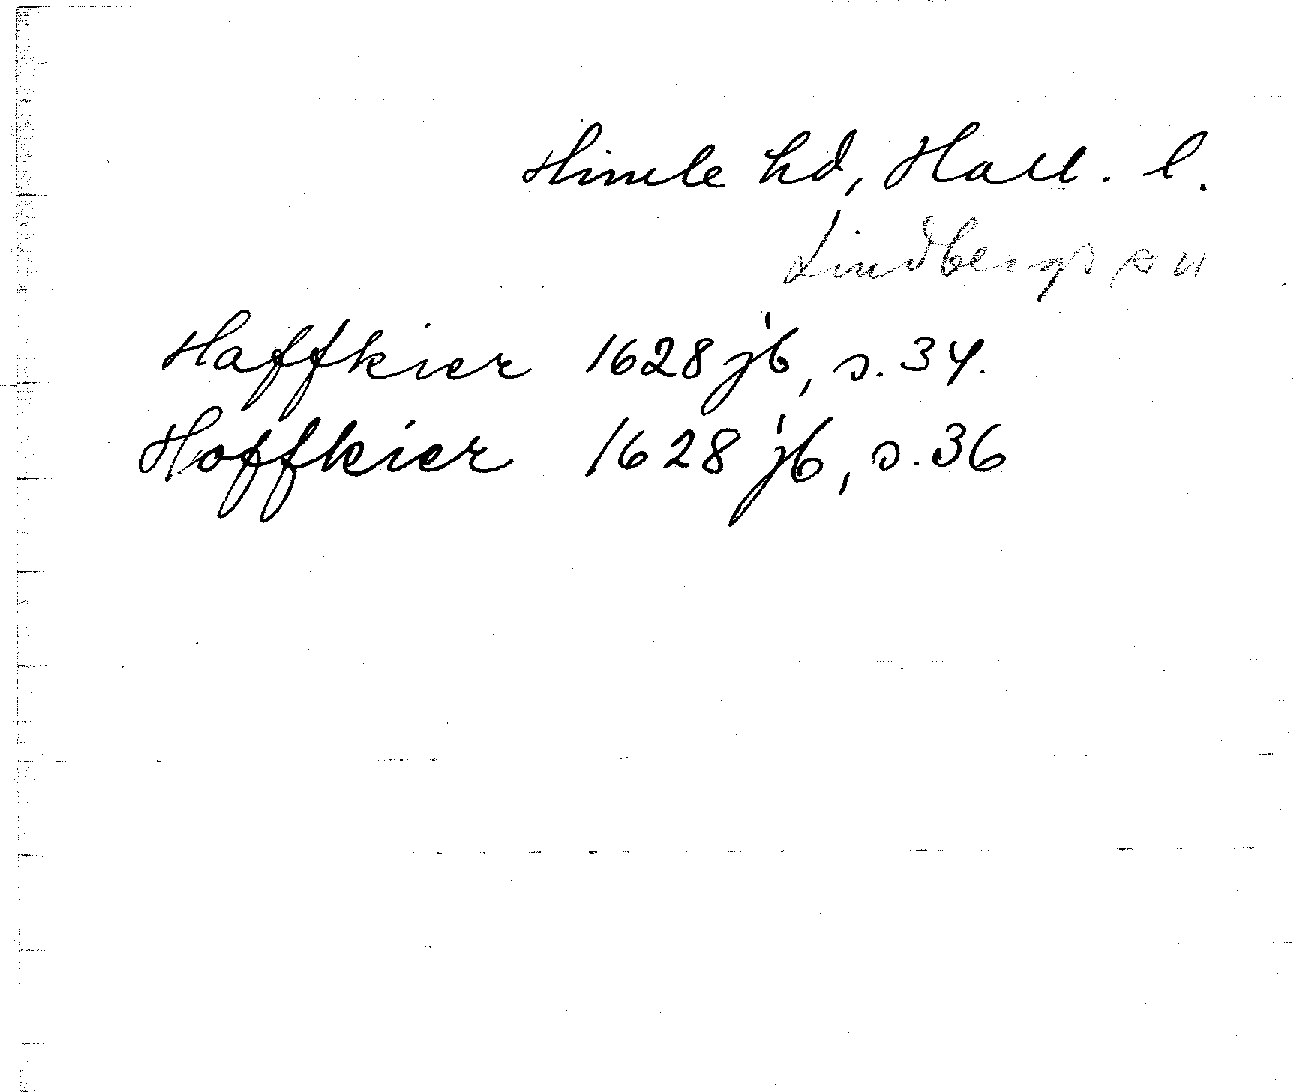 Himle hd, Hall. l.
Lindberga sn
Haffkier 1628 jb, s. 34.
Hoffkier 1628 jb, s. 36